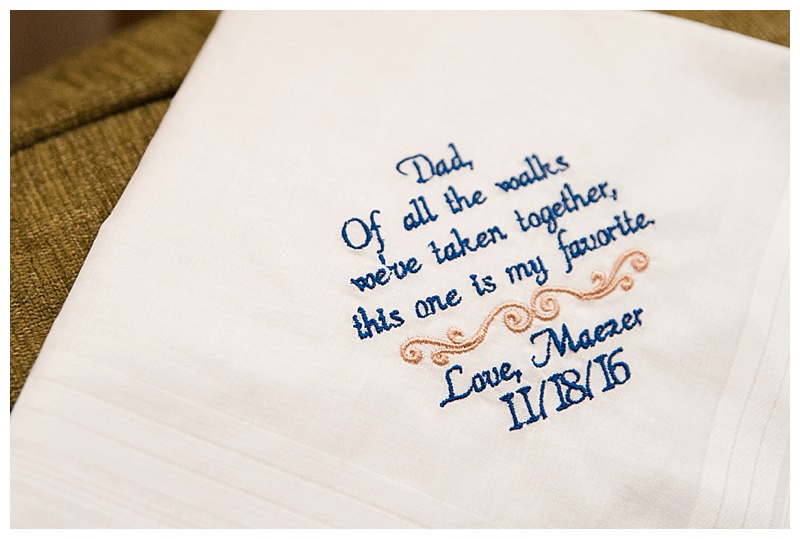 Dad,
Of all the walks
we've taken together,
this one is my favorite.
Love, Maezer
11/18/16